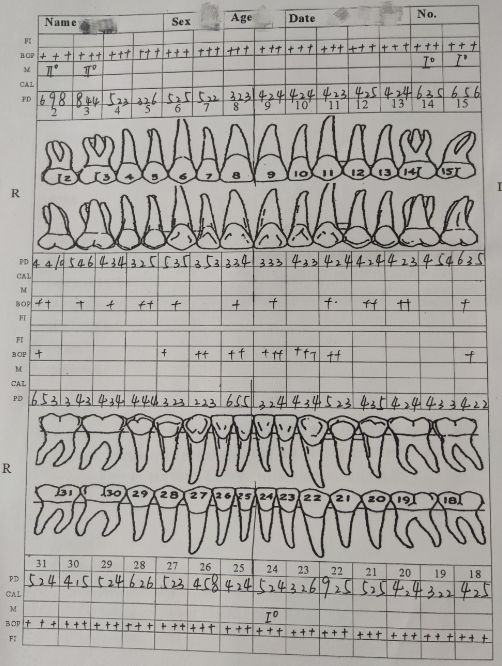 Name Sex Age Date No.
FI
BOP + + + + + + + + + + + + + + + + + + + + + + + + + + + + + + + + + + + + + + + + + +
M II° II° I° I°
PD 698 844 523 326 525 522 323 424 424 423 425 424 635 656
2 3 4 5 6 7 8 9 10 11 12 13 14 15
2 3 4 5 6 7 8 9 10 11 12 13 14 15
R
PD 4 4 10 546 434 325 535 353 334 333 433 424 424 423 454 635
CAL
M
BOP ++ + + ++ + + + + ++ ++ +
FI
FI
BOP + + ++ ++ +++ ++ +
M
CAL
PD 653 343 434 444 323 223 655 324 434 523 435 424 433 422
R
31 30 29 28 27 26 25 24 23 22 21 20 19 18
31 30 29 28 27 26 25 24 23 22 21 20 19 18
PD 524 415 524 626 523 458 424 524 326 925 525 424 322 425
CAL
M I°
BOP + + + + + + + + + + + + + + + + + + + + + + + + + + + + + + + + + + + + + + + + + +
FI